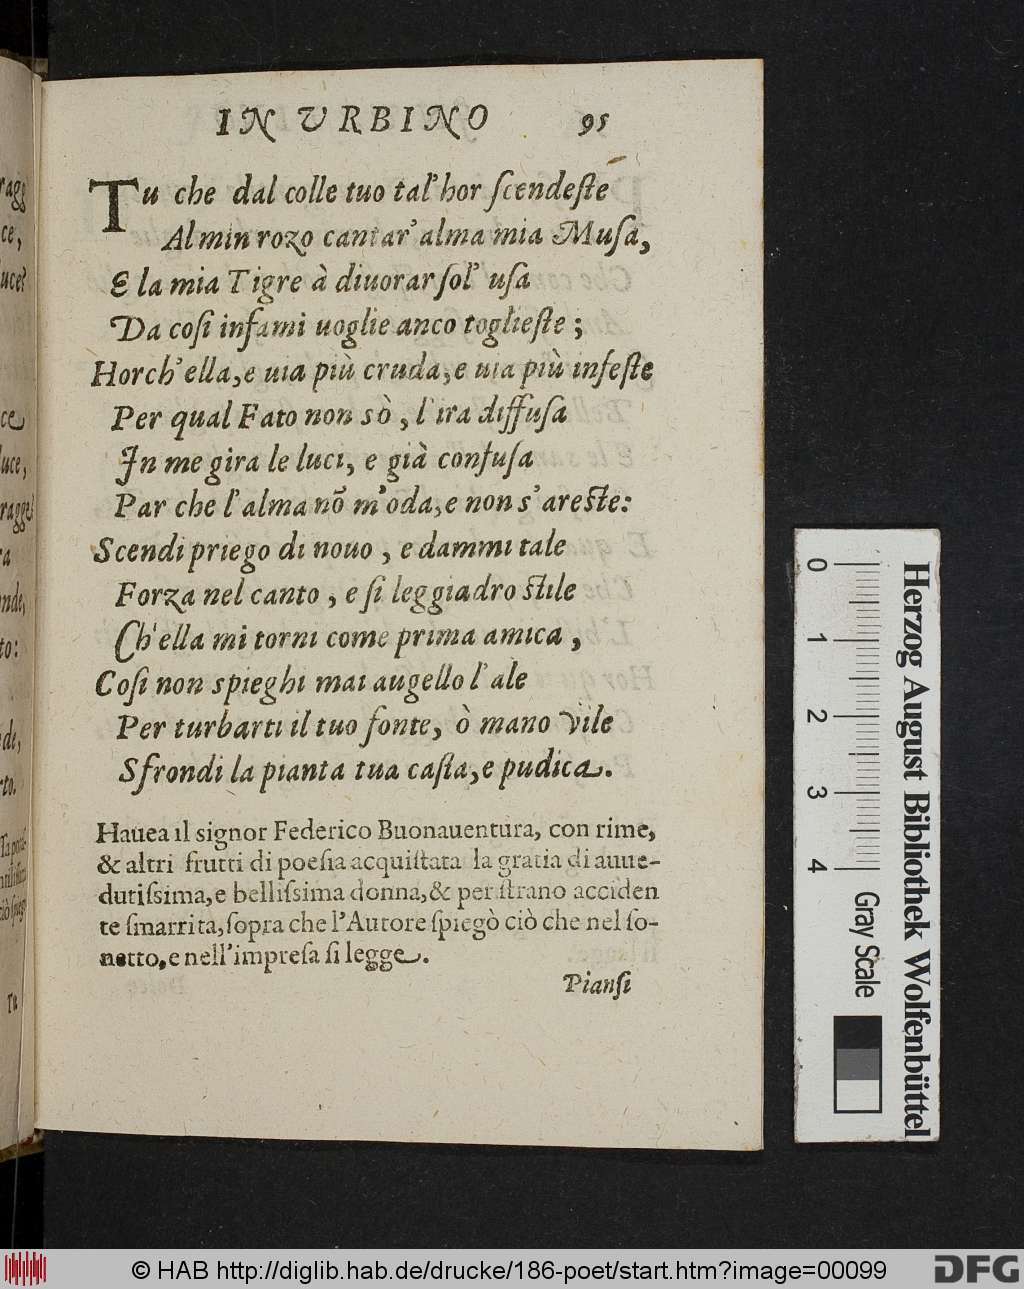 IN VRBINO 95
Tu che dal colle tuo tal'hor ſcendeſte
Al min rozo cantar' alma mia Muſa,
E la mia Tigre à diuorar ſol' uſa
Da coſi infami uoglie anco toglieſte ;
Horch'ella, e uia più cruda, e uia più infeſte
Per qual Fato non sò , l'ira diffuſa
In me gira le luci, e già confuſa
Par che l'alma nõ m'oda, e non s'areſte:
Scendi priego di nouo , e dammi tale
Forza nel canto , e ſi leggiadro ſtile
Ch'ella mi torni come prima amica ,
Coſi non spieghi mai augello l'ale
Per turbarti il tuo fonte, ò mano vile
Sfrondi la pianta tua caſta, e pudica.
Hauea il signor Federico Buonauentura, con rime,
& altri frutti di poeſia acquiſtata la gratia di auue-
dutiſsima, e belliſsima donna, & per ſtrano acciden
te ſmarrita, ſopra che l'Autore ſpiegò ciò che nel ſo-
netto, e nell'impreſa ſi legge.
Pianſi
0 1 2 3 4
Herzog August Bibliothek Wolfenbüttel
Gray Scale
© HAB http://diglib.hab.de/drucke/186-poet/start.htm?image=00099
DFG